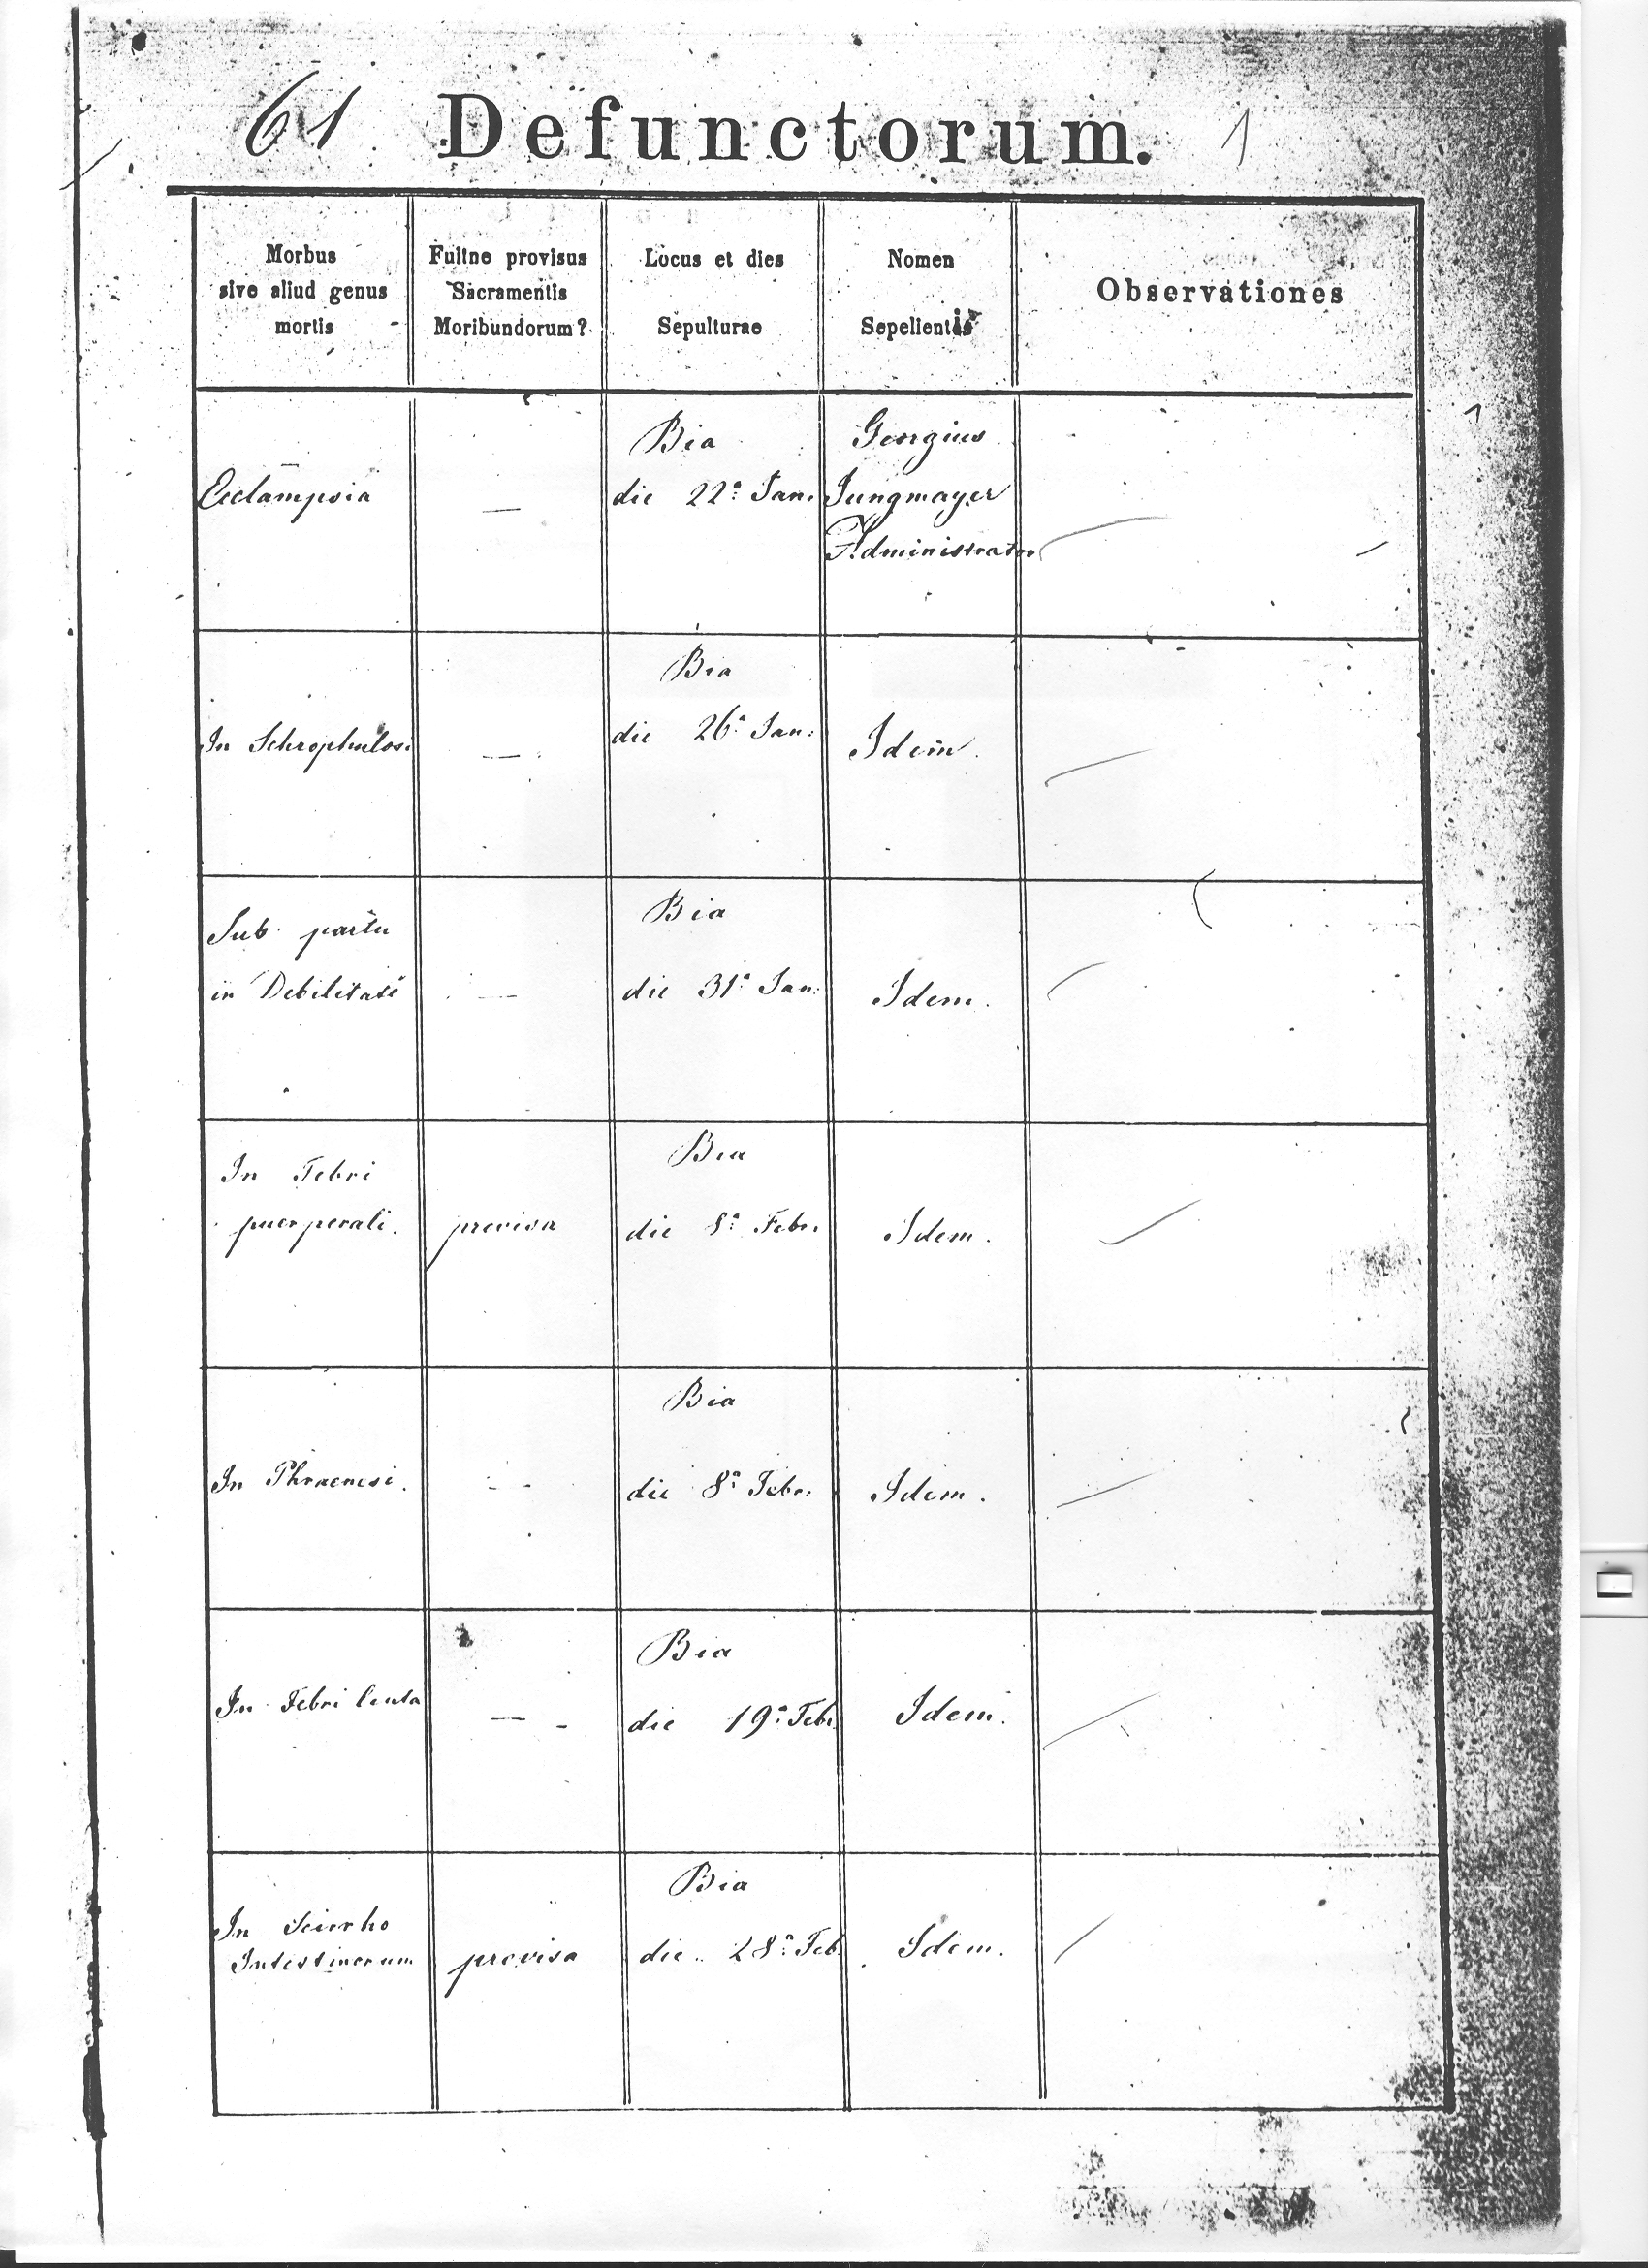 61 Defunctorum. 1
Morbus
sive aliud genus
mortis
Fuitne provisus
Sacramentis
Moribundorum?
Locus et dies
Sepulturae
Nomen
Sepelientis
Observationes
Ecclampsia
—
Bia
die 22ª Jan.
Georgius
Jungmayer
Administrator
In Schrophulosi
—
Bia
die 26ª Jan:
Idem.
Sub partu
in Debilitate
—
Bia
die 31ª Jan:
Idem.
In Febri
puerperali.
provisa
Bia
die 8ª Febr.
Idem.
In Phraenesi.
—
Bia
die 8ª Febr:
Idem.
In Febri lenta
—
Bia
die 19ª Feb.
Idem.
In Scirrho
Intestinorum
provisa
Bia
die 28ª Feb.
Idem.